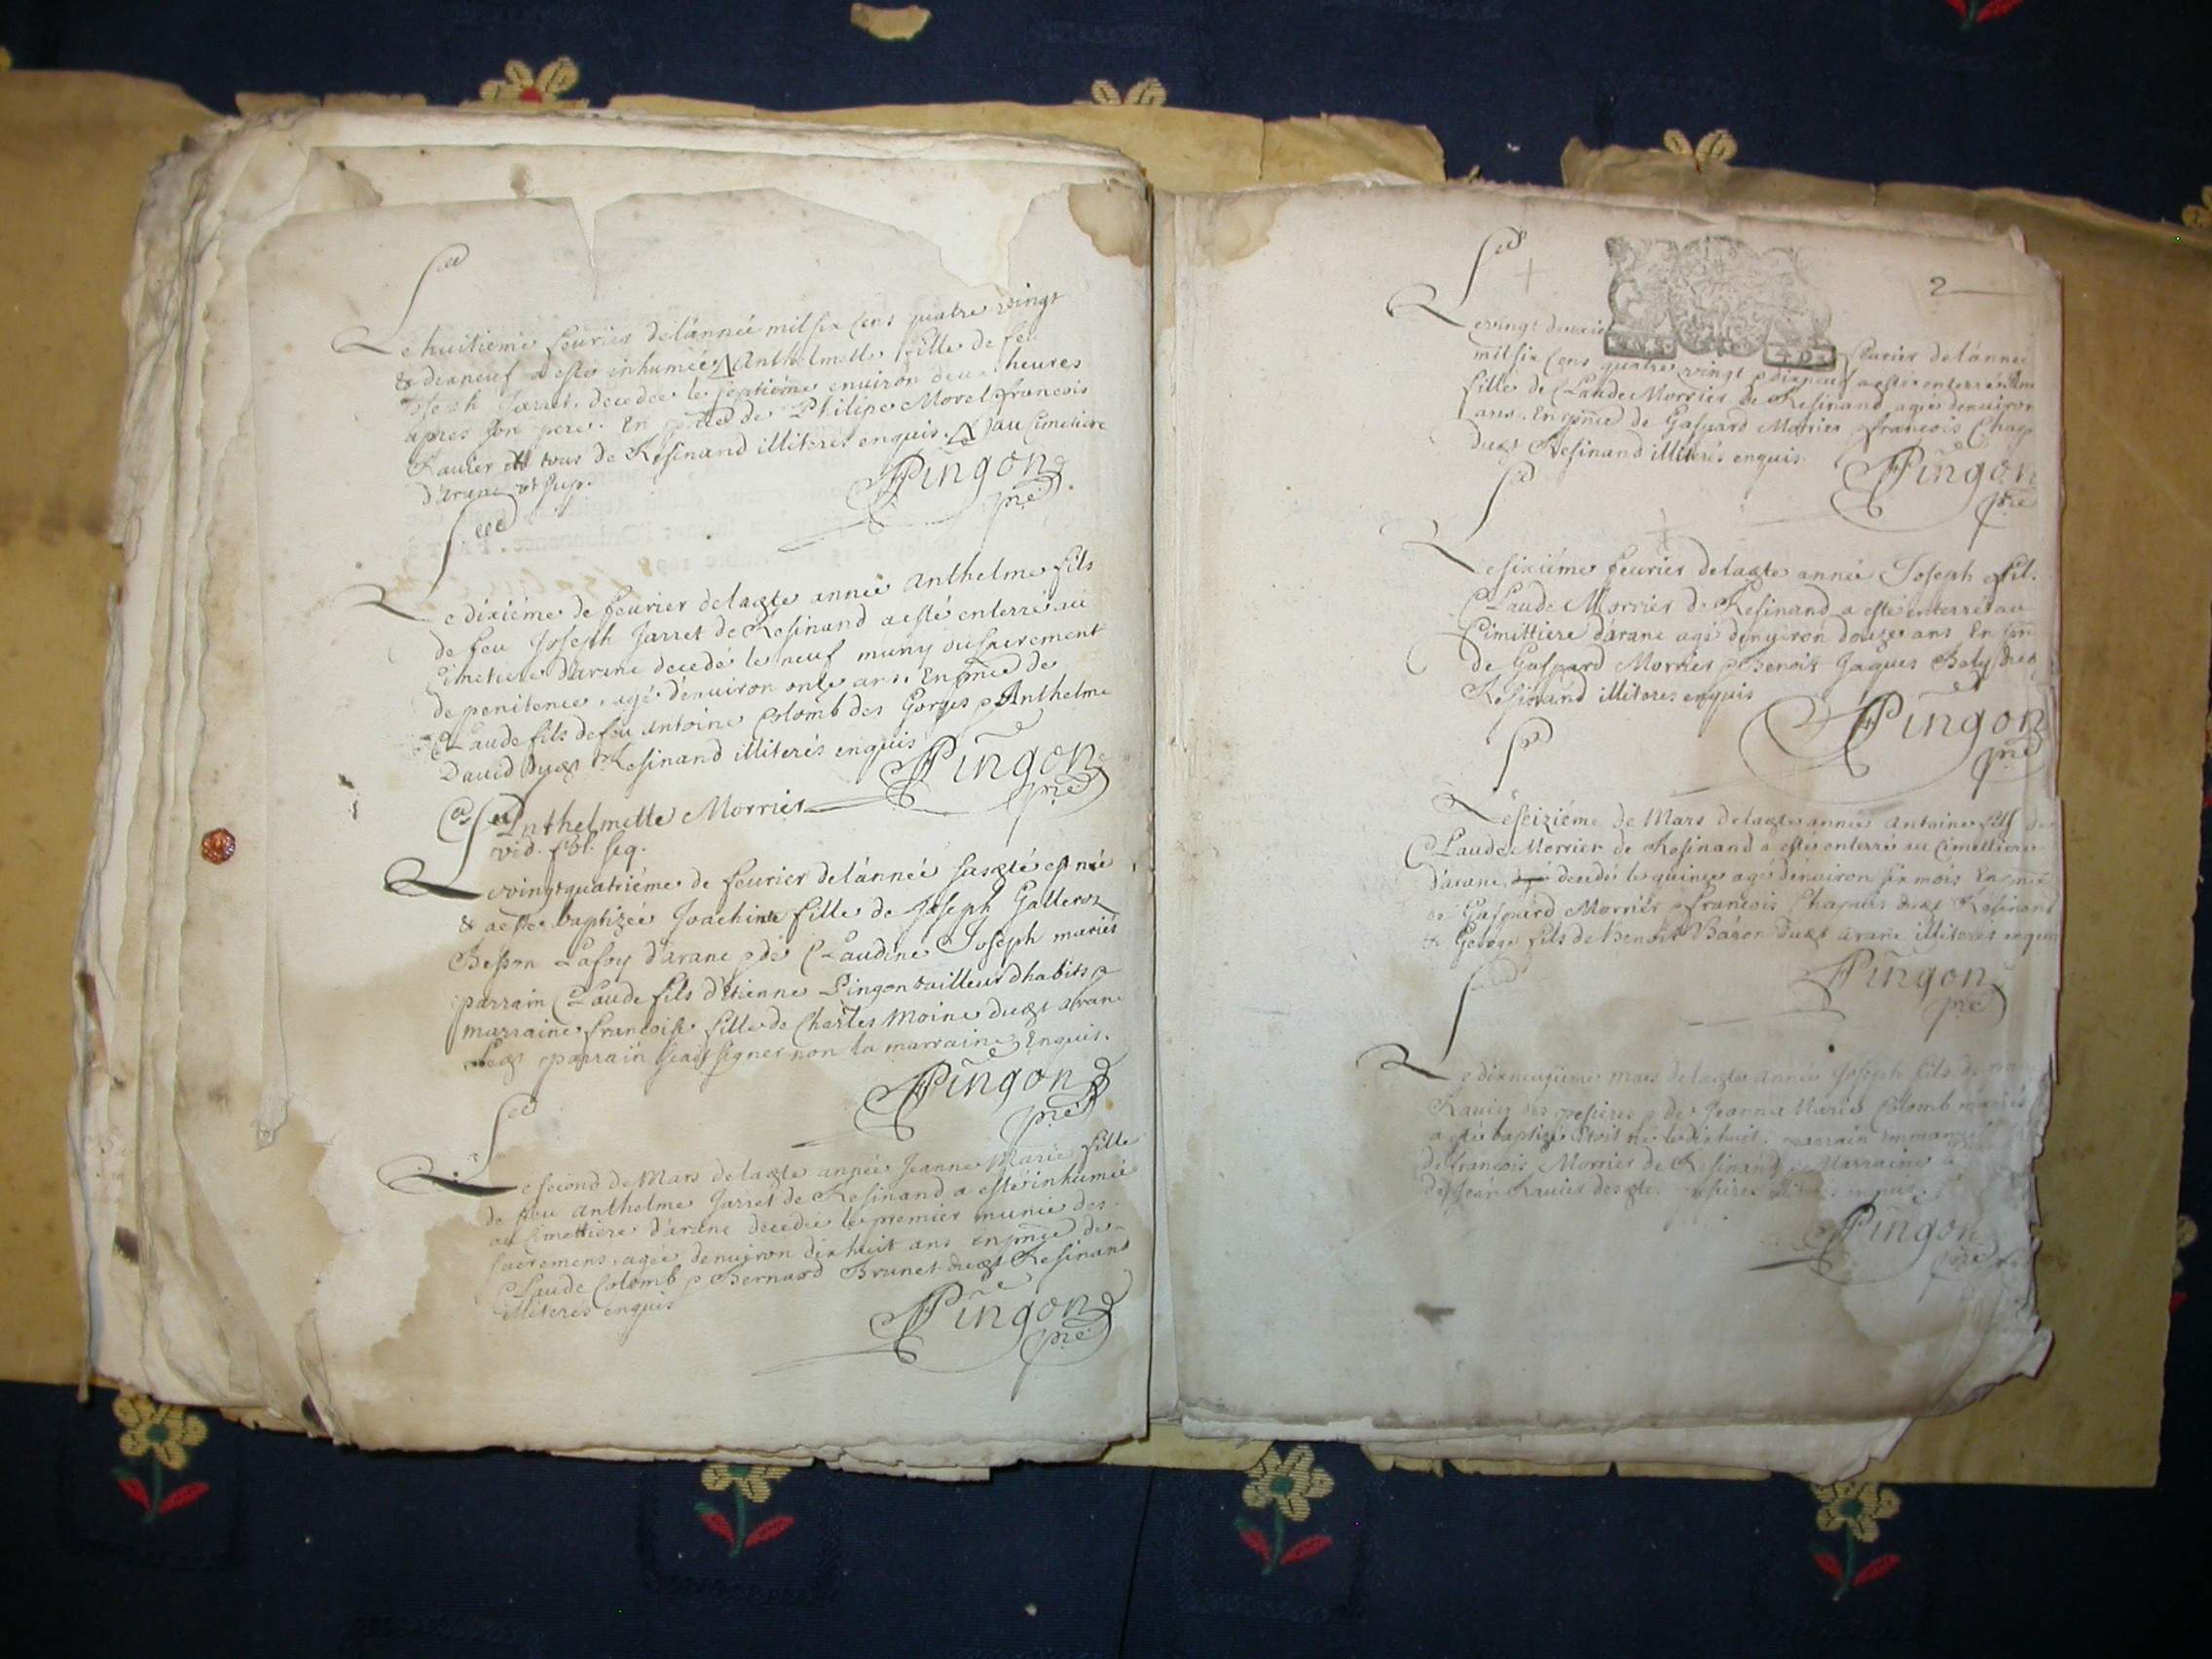 Le huitieme feurier de l'année mil six cens quatre vingt
& dix neuf a esté inhumée Anthelmette fille de feu
Joseph Jarret, decedée le septiéme enuiron deux heures
apres son pere. En pnce de Philipe Morel francois
Rauier tous de Resinand illiterés enquis. au Cimetiere
d'arane ut sup.
Pingon
pre
Le dixiéme de feurier de lade année Anthelme fils
de feu Joseph Jarret de Resinand a esté enterré au
Cimetiere d'arane decedé le neuf muny du sacrement
de penitence, agé d'enuiron onze ans. En pnce de
Claude fils de feu Antoine Colomb des Gorges & Anthelme
Dauid dudt Resinand illiterés enquis
Pingon
pre
Anthelmette Morrier
vid. fol. seq.
Le vingt quatriéme de feurier de l'année susdte est née
& a esté baptizée Joachine fille de Joseph Galleron
Besson Lafoy d'arane & de Claudine Joseph mariés
parrain Claude fils d'Etienne Pingon tailleur d'habits &
marraine francoise fille de Charles Moine dudt arane
Ledt parrain scait signer non la marraine Enquis.
Pingon
pre
Le second de Mars de lade année Jeanne Marie fille
de feu Anthelme Jarret de Resinand a esté inhumée
au Cimettiere d'arane decedée le premier munie des
sacremens, agée denuiron dix huit ans en pnce de
Claude Colomb & Bernard Brunet dudt Resinand
illiterés enquis
Pingon
pre
2
Le vingt feurier de l'année
mil six cens quatre vingt & dix neuf a esté enterrée
fille de Claude Morrier de Resinand agée denuiron
ans. En pnce de Gaspard Morrier & francois
dudt Resinand illiterés enquis.
Pingon
pre
Le sixiéme feurier de lade année Joseph fils
Claude Morrier de Resinand a esté enterré au
Cimittiere d'arane agé denuiron douze ans En
de Gaspard Morrier & Benoit Jaques Bely
Resinand illiterés enquis
Pingon
pre
Le seiziéme de Mars de lade année Antoine fils de
Claude Morrier de Resinand a esté enterré au Cimettiere
d'arane, decedé le quinze agé d'enuiron six mois En pnce
de Gaspard Morrier & francois Chapuis dudt Resinand
& George fils de Benoit Baron dudt arane illiterés enquis
Pingon
pre
Le dixneuuieme mars de lade année Joseph fils de
Rauier & de Jeanne Marie Colomb mariés
a esté baptizé Etoit né le dix huit. parrain
de francois Morrier de Resinand Marraine
de Jean Rauier
Pingon
pre